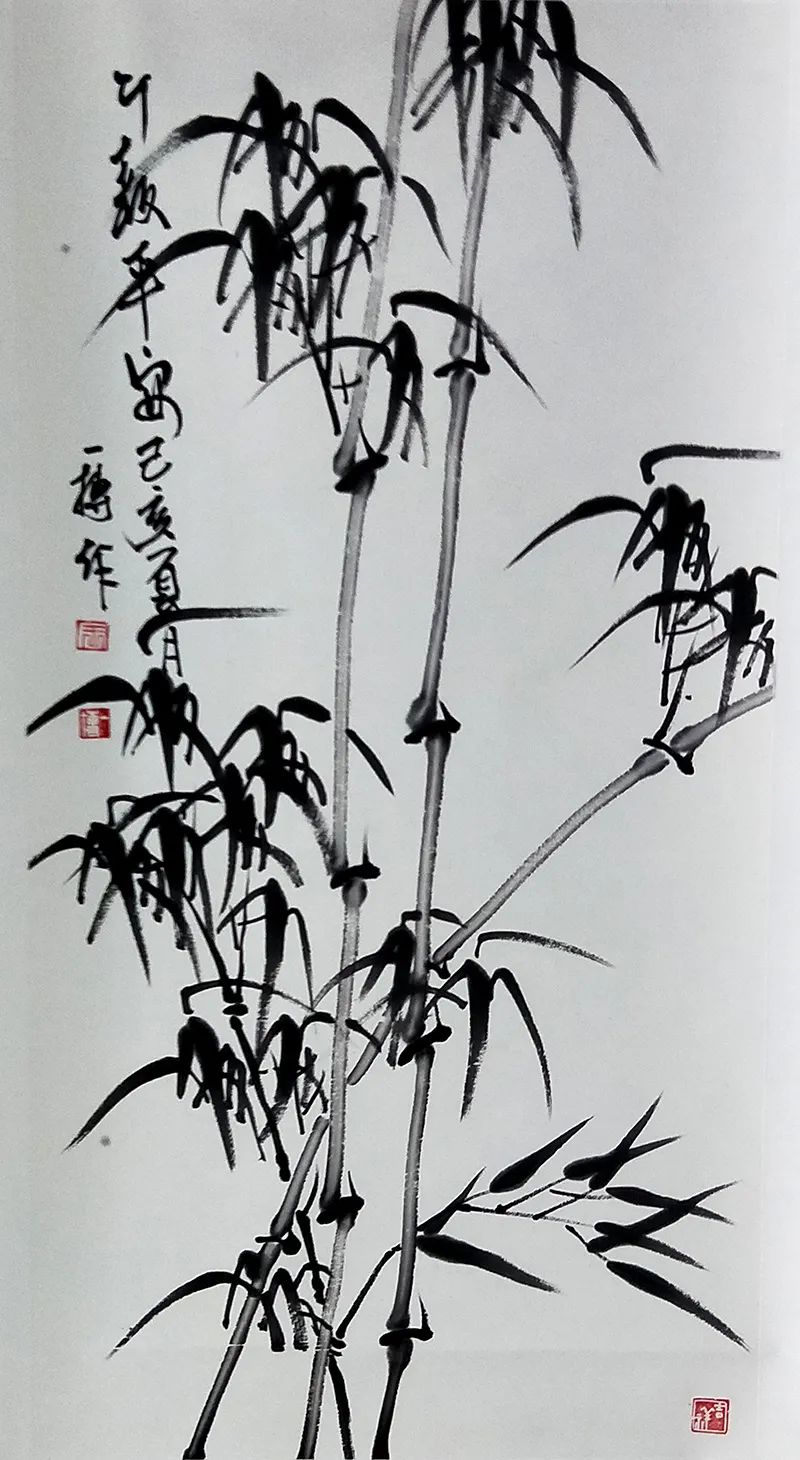 竹報平安己亥夏月
一作